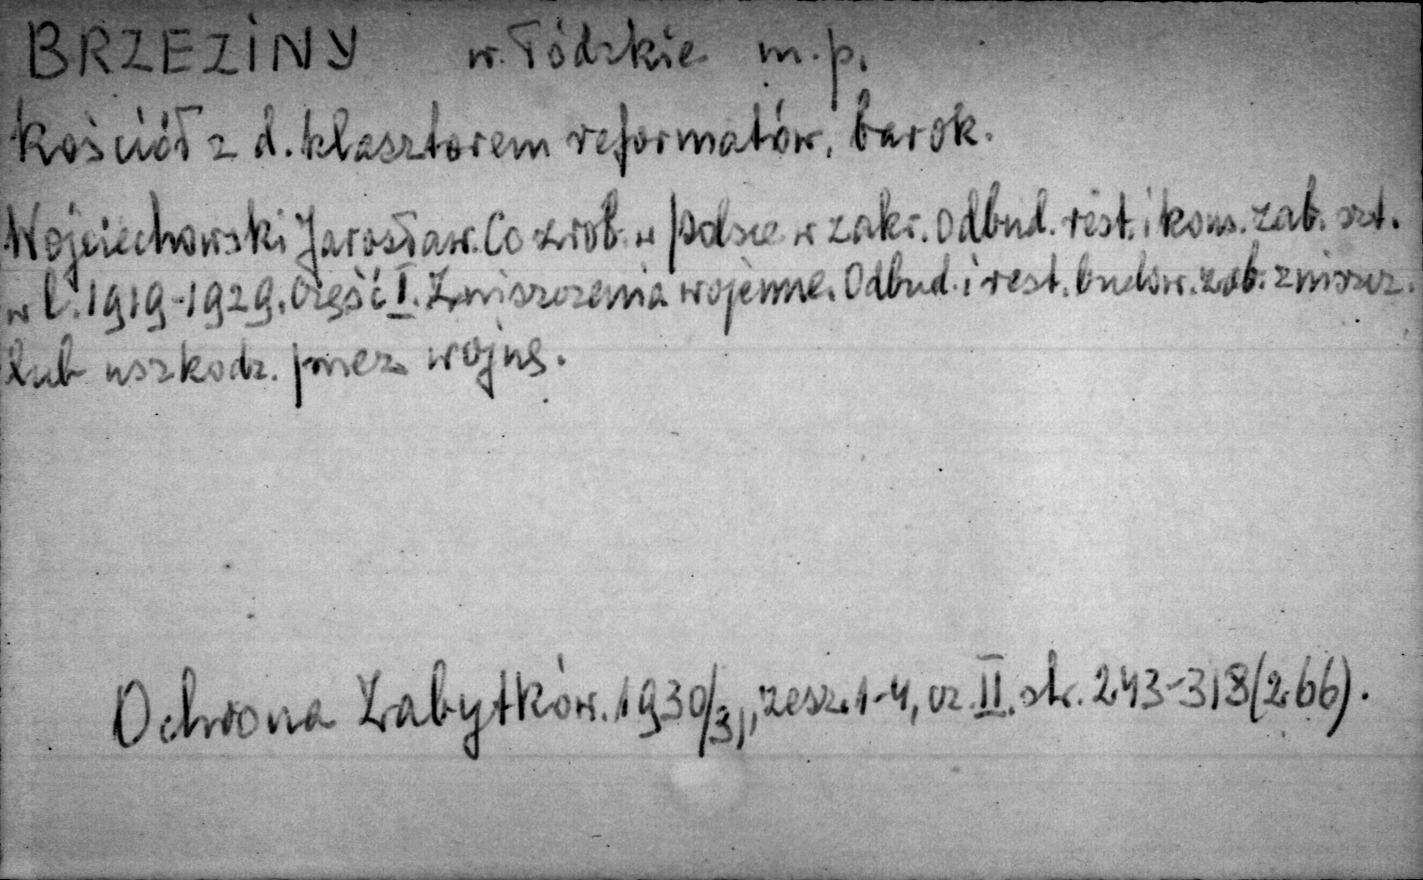 BRZEZINY w. Łódzkie m.p.
Kościół z d. klasztorem reformatów, barok.
Wojciechowski Jarosław. Co zrob. w Polsce w zakr. odbud. rest. i kons. zab. szt.
w l. 1919-1929. Część I. Zniszczenia wojenne. Odbud. i rest. budow. zab. zniszcz.
lub uszkodz. przez wojnę.
Ochrona Zabytków. 1930/31, zesz. 1-4, cz. II. str. 243-318 (266).